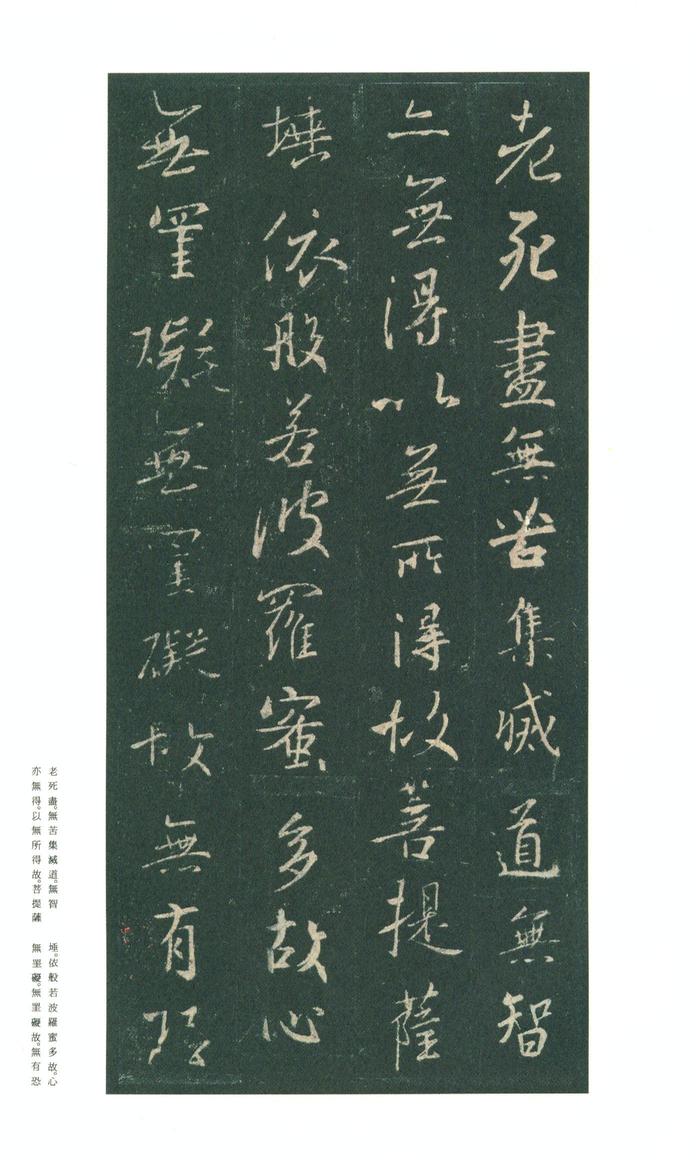 老死盡無苦集滅道無智
亦無得以無所得故菩提薩
埵依般若波羅蜜多故心
無罣礙無罣礙故無有恐
老死盡。無苦集滅道。無智
亦無得。以無所得故。菩提薩
埵。依般若波羅蜜多故。心
無罣礙。無罣礙故。無有恐